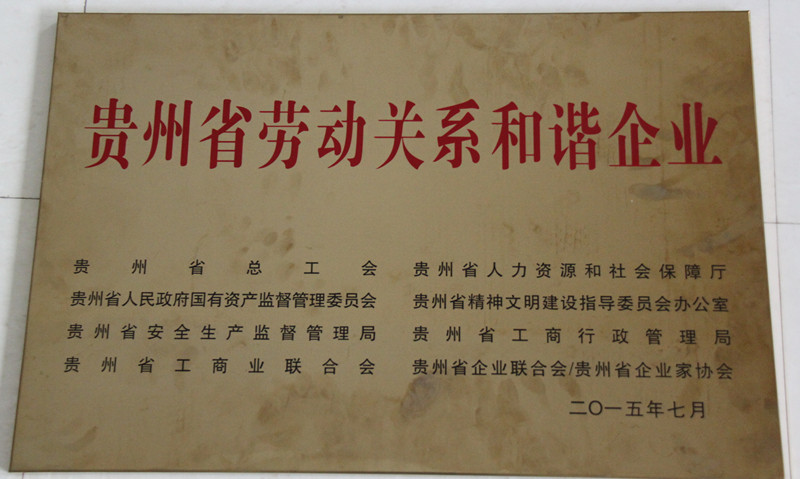 贵州省劳动关系和谐企业
贵州省总工会 贵州省人力资源和社会保障厅
贵州省人民政府国有资产监督管理委员会 贵州省精神文明建设指导委员会办公室
贵州省安全生产监督管理局 贵州省工商行政管理局
贵州省工商业联合会 贵州省企业联合会/贵州省企业家协会
二〇一五年七月